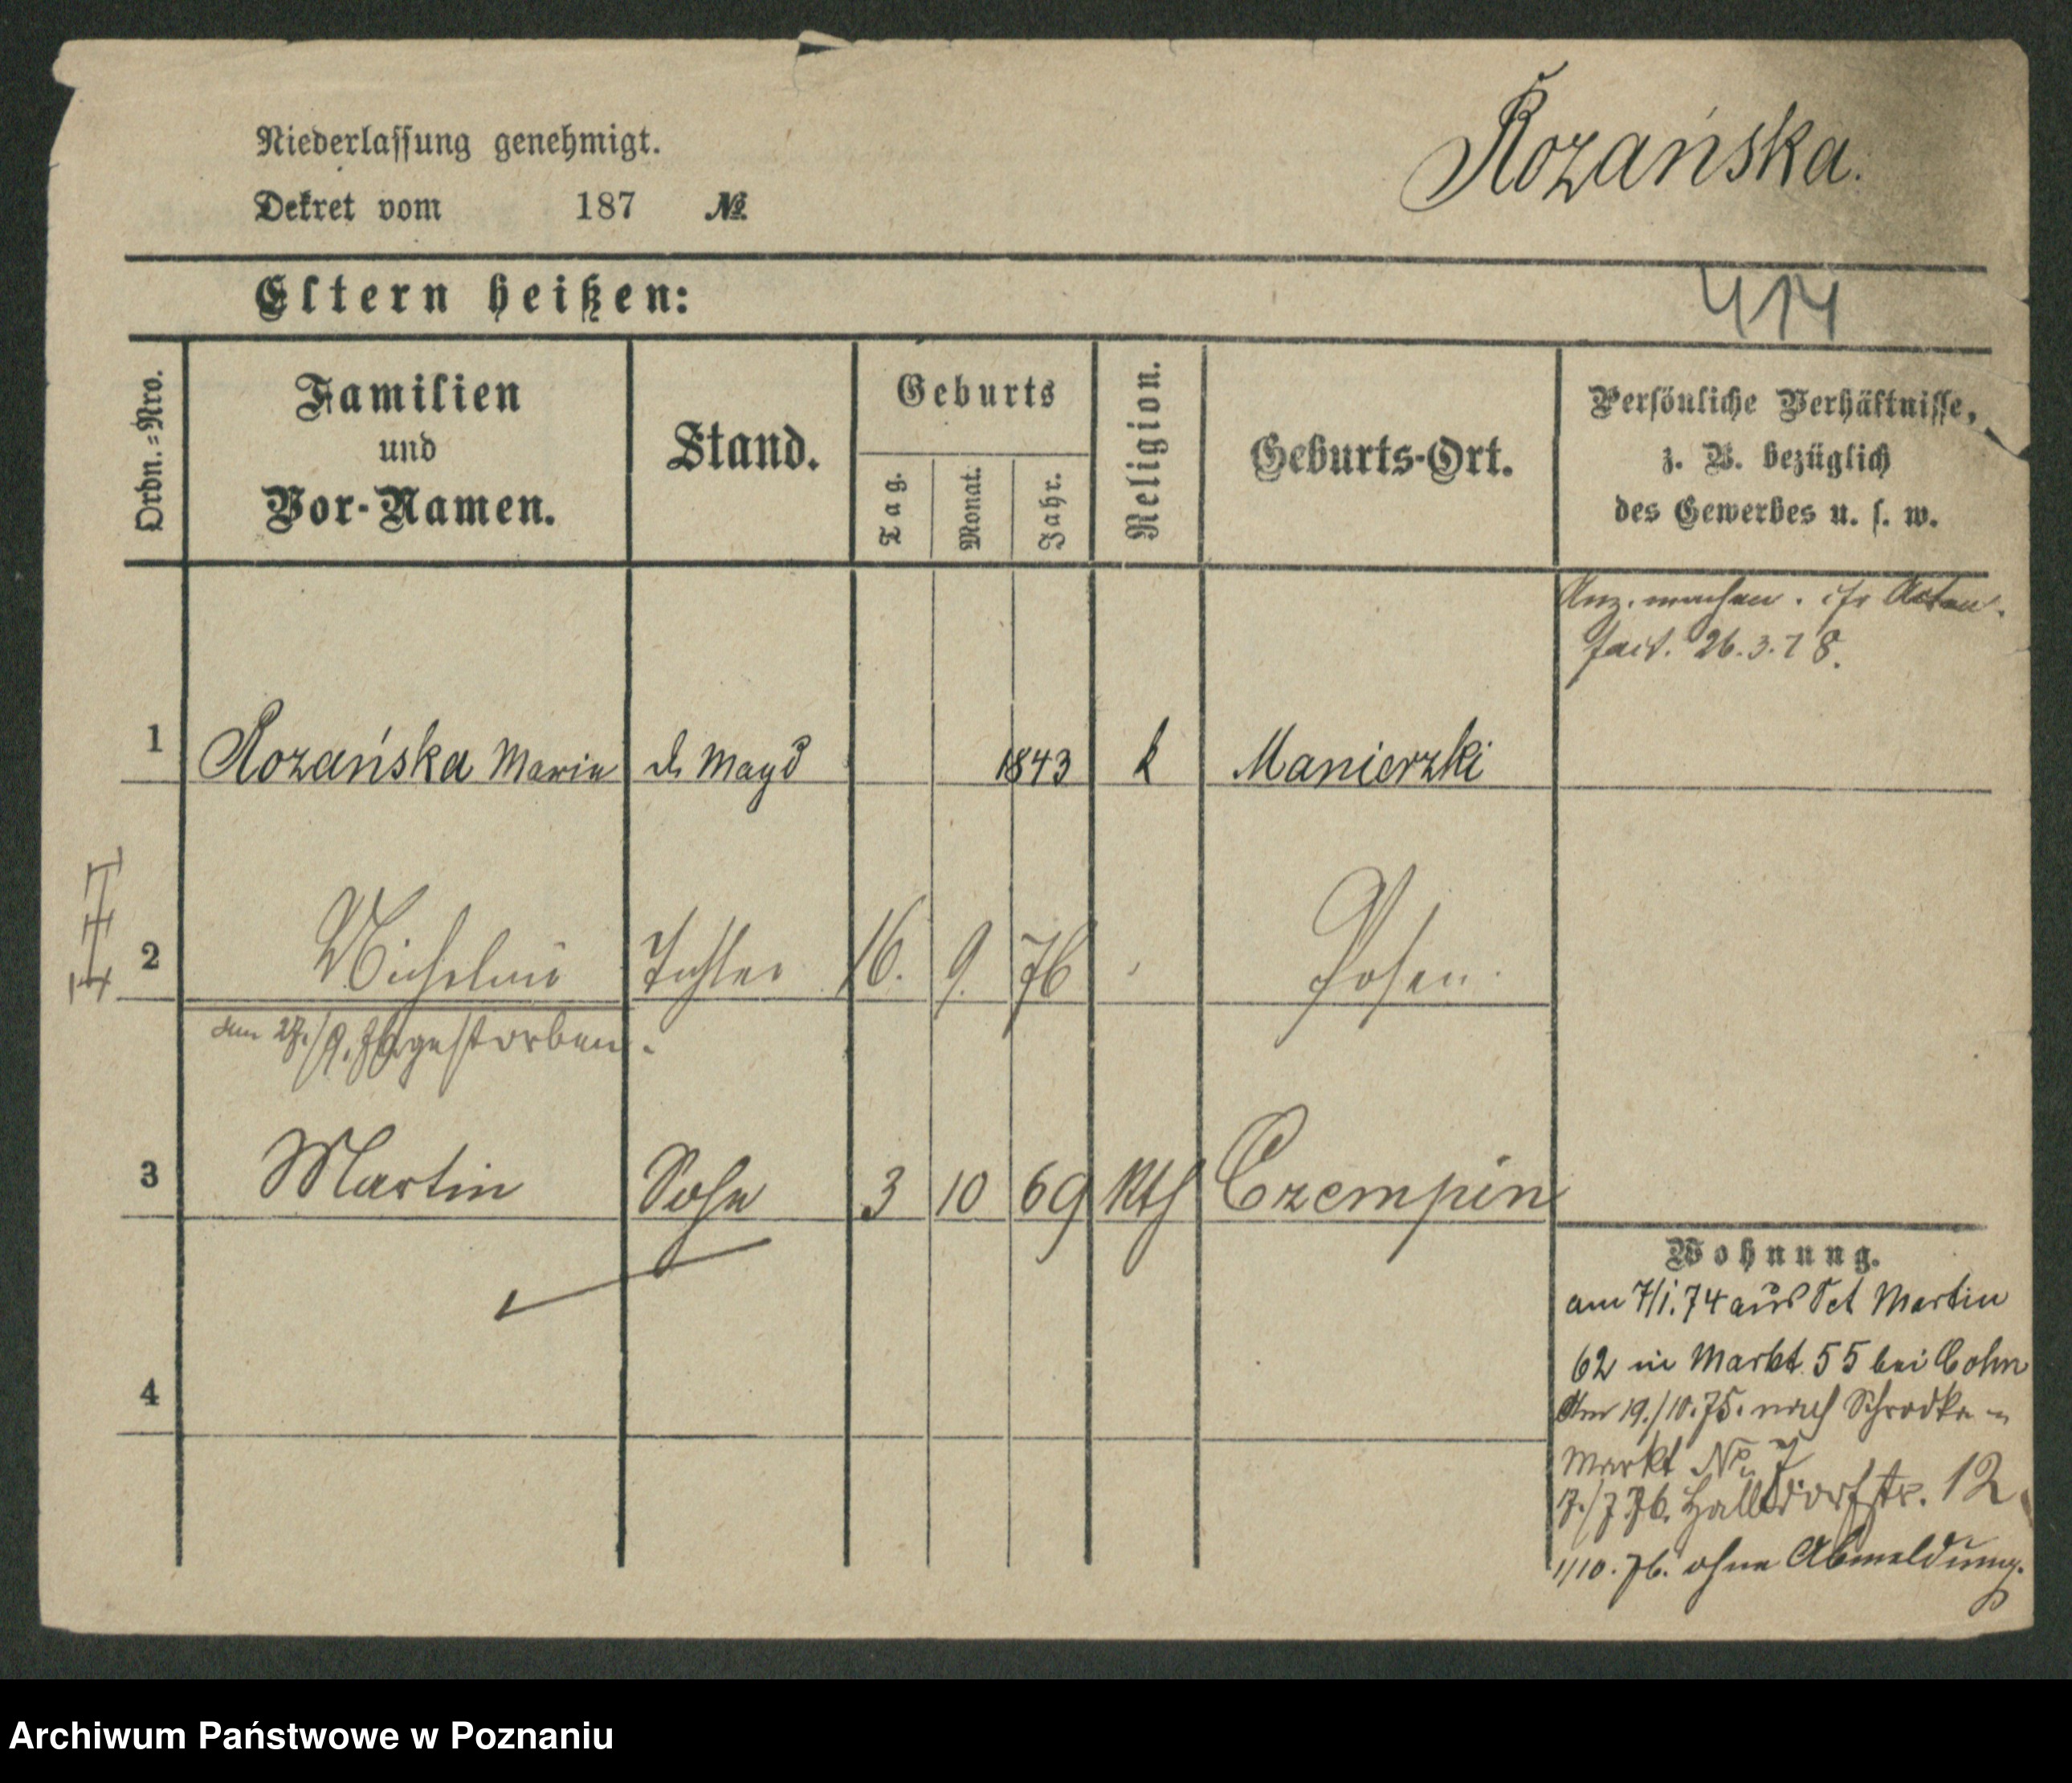 Rozańska.
Niederlassung genehmigt.
Dekret vom 187 №
Eltern heißen:
414
Ordn.=Nro.
Familien
und
Vor-Namen.
Stand.
Geburts
Tag.
Monat.
Jahr.
Religion.
Geburts-Ort.
Persönliche Verhältnisse,
z. B. bezüglich
des Gewerbes u. s. w.
26.3.78.
1 Rozańska Marie d. Magd 1843 k Manierzki
2 Tochter 16. 9. 76 Posen.
am 27./9.76 gestorben.
3 Martin Sohn 3 10 69 Kth Czempin
4
Wohnung.
am 7/1.74 aus Sct Martin
62 in Markt 55 bei Cohn
Am 19./10.75. nach Schrodka
Markt No 7
7./7.76. Halbdorfstr. 12
1/10.76. ohne Abmeldung.
Archiwum Państwowe w Poznaniu